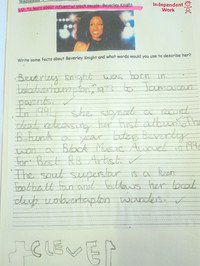 LO: To learn about influential black people- Beverley Knight
Independent
Work
Write some facts about Beverley Knight and what words would you use to describe her?
Beverley Knight was born in
Wolverhampton, to Jamaican
parents.
In 1994 she signed a record
deal releasing her first album, The
B-Funk a year later Beverley
won a Black Music Award in 1996
for Best RB Artist.
The soul superstar is a keen
football fan and follows her local
club wolverhapton wanders.
CLEVER